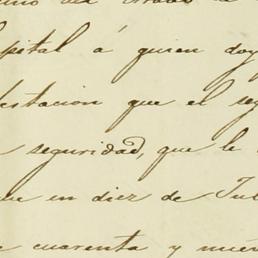 pital á quien doy
estacion que el seg
seguridad, que le
ue en diez de Jul
e cuarenta y nuev